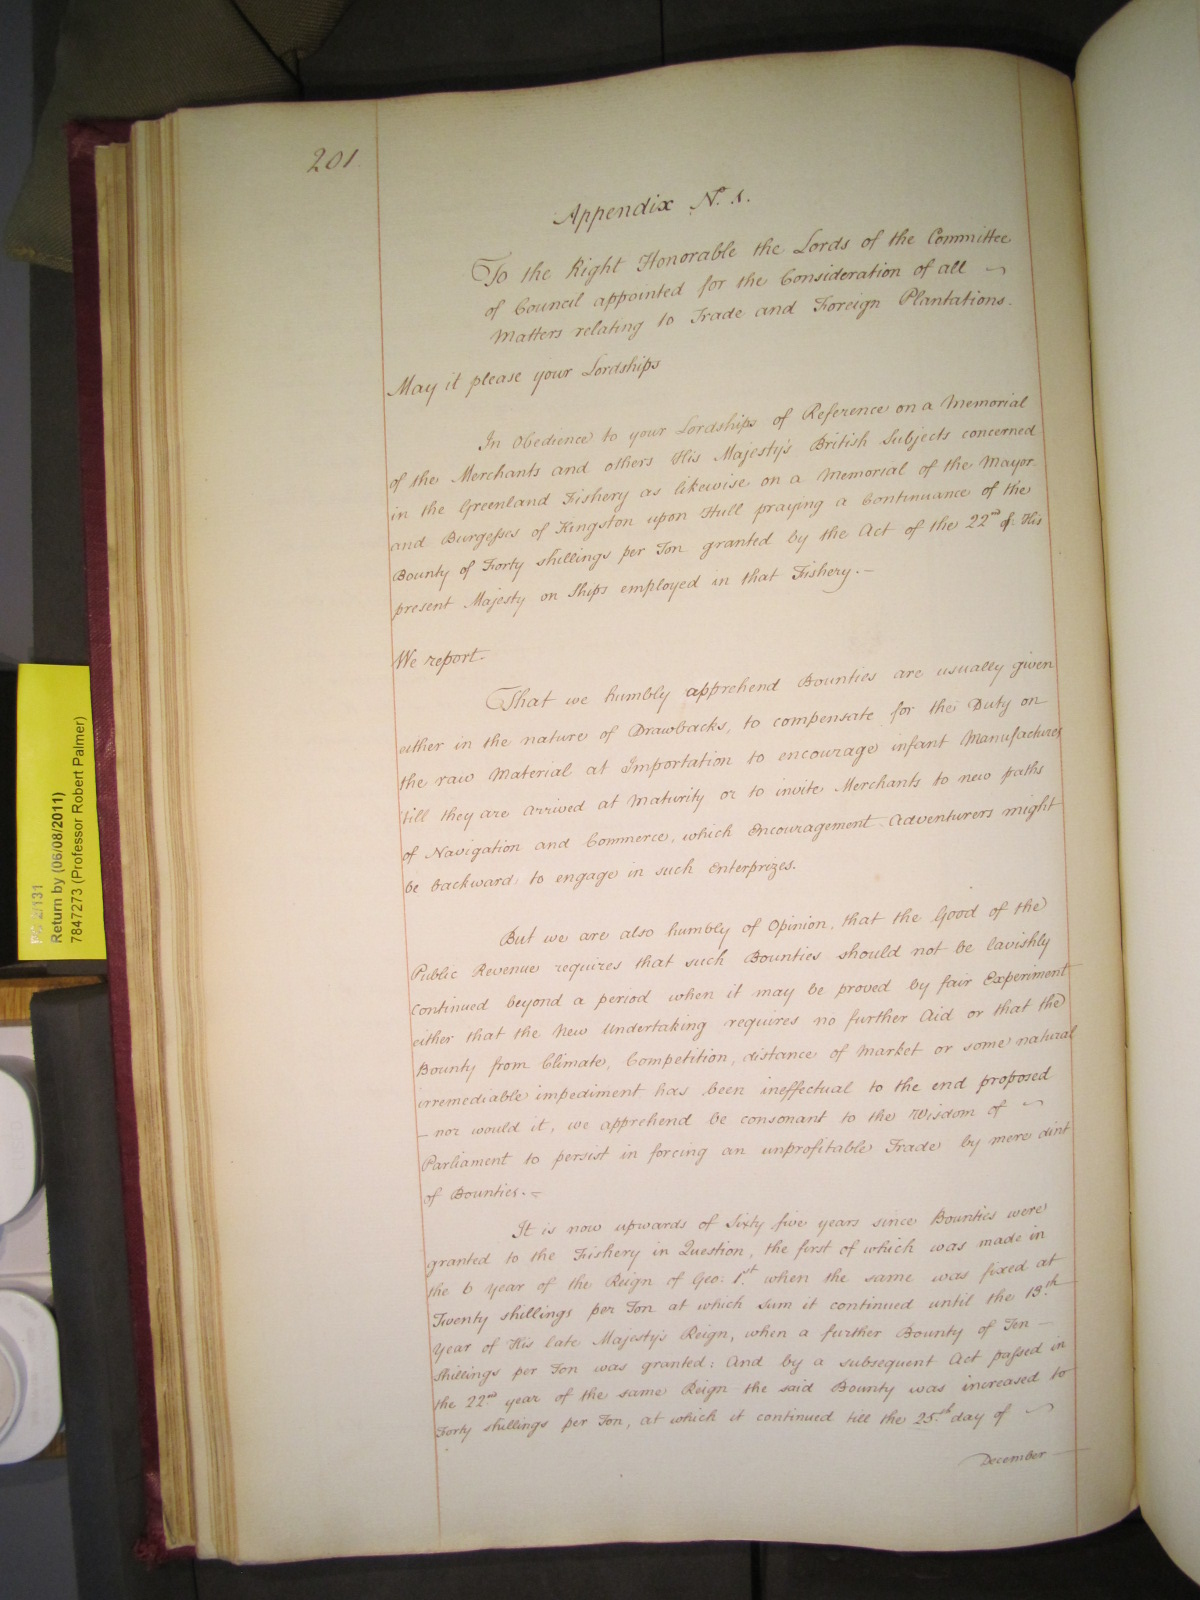 201.
Appendix No. 1.
To the Right Honorable the Lords of the Committee
of Council appointed for the Consideration of all
Matters relating to Trade and Foreign Plantations.
May it please your Lordships
In Obedience to your Lordships of Reference on a Memorial
of the Merchants and others His Majesty's British Subjects concerned
in the Greenland Fishery as likewise on a Memorial of the Mayor
and Burgesses of Kingston upon Hull praying a Continuance of the
Bounty of Forty shillings per Ton granted by the Act of the 22nd of His
present Majesty on Ships employed in that Fishery. —
We report.
That we humbly apprehend Bounties are usually given
either in the nature of Drawbacks, to compensate for the Duty on
the raw Material at Importation to encourage infant Manufactures
till they are arrived at Maturity or to invite Merchants to new paths
of Navigation and Commerce, which Encouragement Adventurers might
be backward to engage in such Enterprizes.
But we are also humbly of Opinion, that the Good of the
Public Revenue requires that such Bounties should not be lavishly
continued beyond a period when it may be proved by fair Experiment
either that the New Undertaking requires no further Aid or that the
Bounty from Climate, Competition, distance of Market or some natural
irremediable impediment has been ineffectual to the end proposed
— nor would it, we apprehend be consonant to the Wisdom of
Parliament to persist in forcing an unprofitable Trade by mere dint
of Bounties. —
It is now upwards of Sixty five years since Bounties were
granted to the Fishery in Question, the first of which was made in
the 6 year of the Reign of Geo: 1st. when the same was fixed at
Twenty shillings per Ton at which Sum it continued until the 13th
Year of His late Majesty's Reign, when a further Bounty of Ten —
shillings per Ton was granted: And by a subsequent Act passed in
the 22nd year of the same Reign the said Bounty was increased to
Forty shillings per Ton, at which it continued till the 25th day of
December
2/131
Return by (06/08/2011)
7847273 (Professor Robert Palmer)